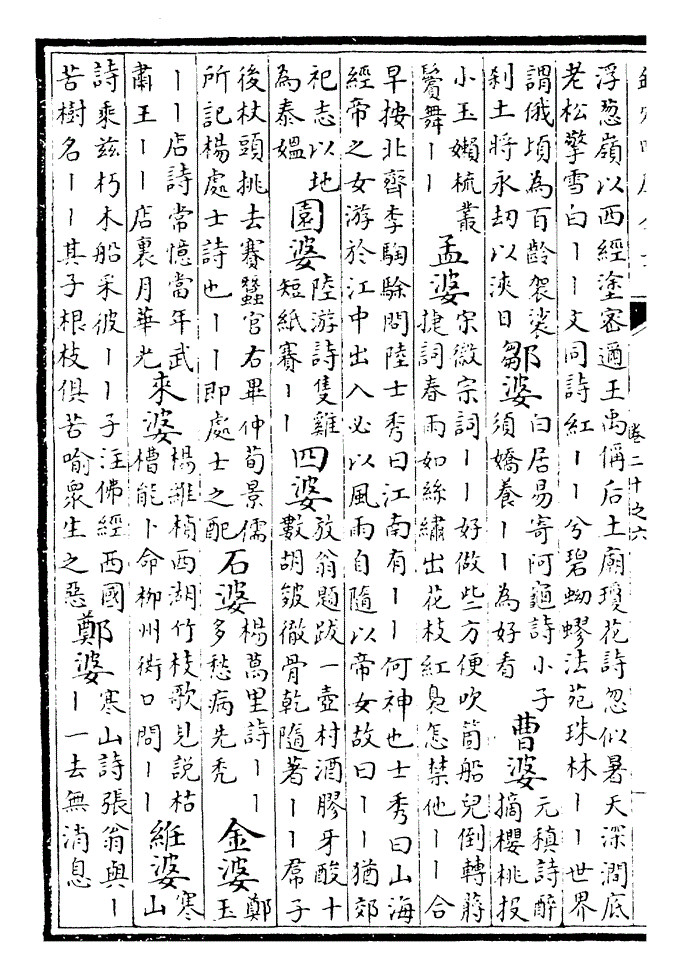 卷二十之六
浮蔥嶺以西經塗寔邇王禹偁后土廟瓊花詩忽似暑天深澗底
老松擎雪白丨丨文同詩紅丨丨兮碧蚴蟉法苑珠林丨丨世界
謂俄頃為百齡袈裟
刹土將永劫以浹日
鄒婆
白居易寄阿龜詩小子
須嬌養丨丨為好看
曹婆
元稹詩醉
摘櫻桃投
小玉嬾梳叢
鬢舞丨丨
孟婆
宋徽宗詞丨丨好做些方便吹箇船兒倒轉蔣
捷詞春雨如絲繡出花枝紅裊怎禁他丨丨合
早按北齊李騊駼問陸士秀曰江南有丨丨何神也士秀曰山海
經帝之女游於江中出入必以風雨自隨以帝女故曰丨丨猶郊
祀志以地
為泰媼
園婆
陸游詩隻雞
短紙賽丨丨
四婆
放翁題跋一壺村酒膠牙酸十
數胡皴徹骨乾隨著丨丨羣子
後杖頭挑去賽蠶官右畢仲荀景儒
所記楊處士詩也丨丨即處士之配
石婆
楊萬里詩丨丨
多愁病先禿
金婆
鄭
玉
丨丨店詩常憶當年武
肅王丨丨店裏月華光
來婆
楊維楨西湖竹枝歌見說枯
槽能卜命柳州衖口問丨丨
絍婆
寒
山
詩乘茲朽木船采彼丨丨子注佛經西國
苦樹名丨丨其子根枝俱苦喻衆生之惡
鄭婆
寒山詩張翁與丨
丨一去無消息